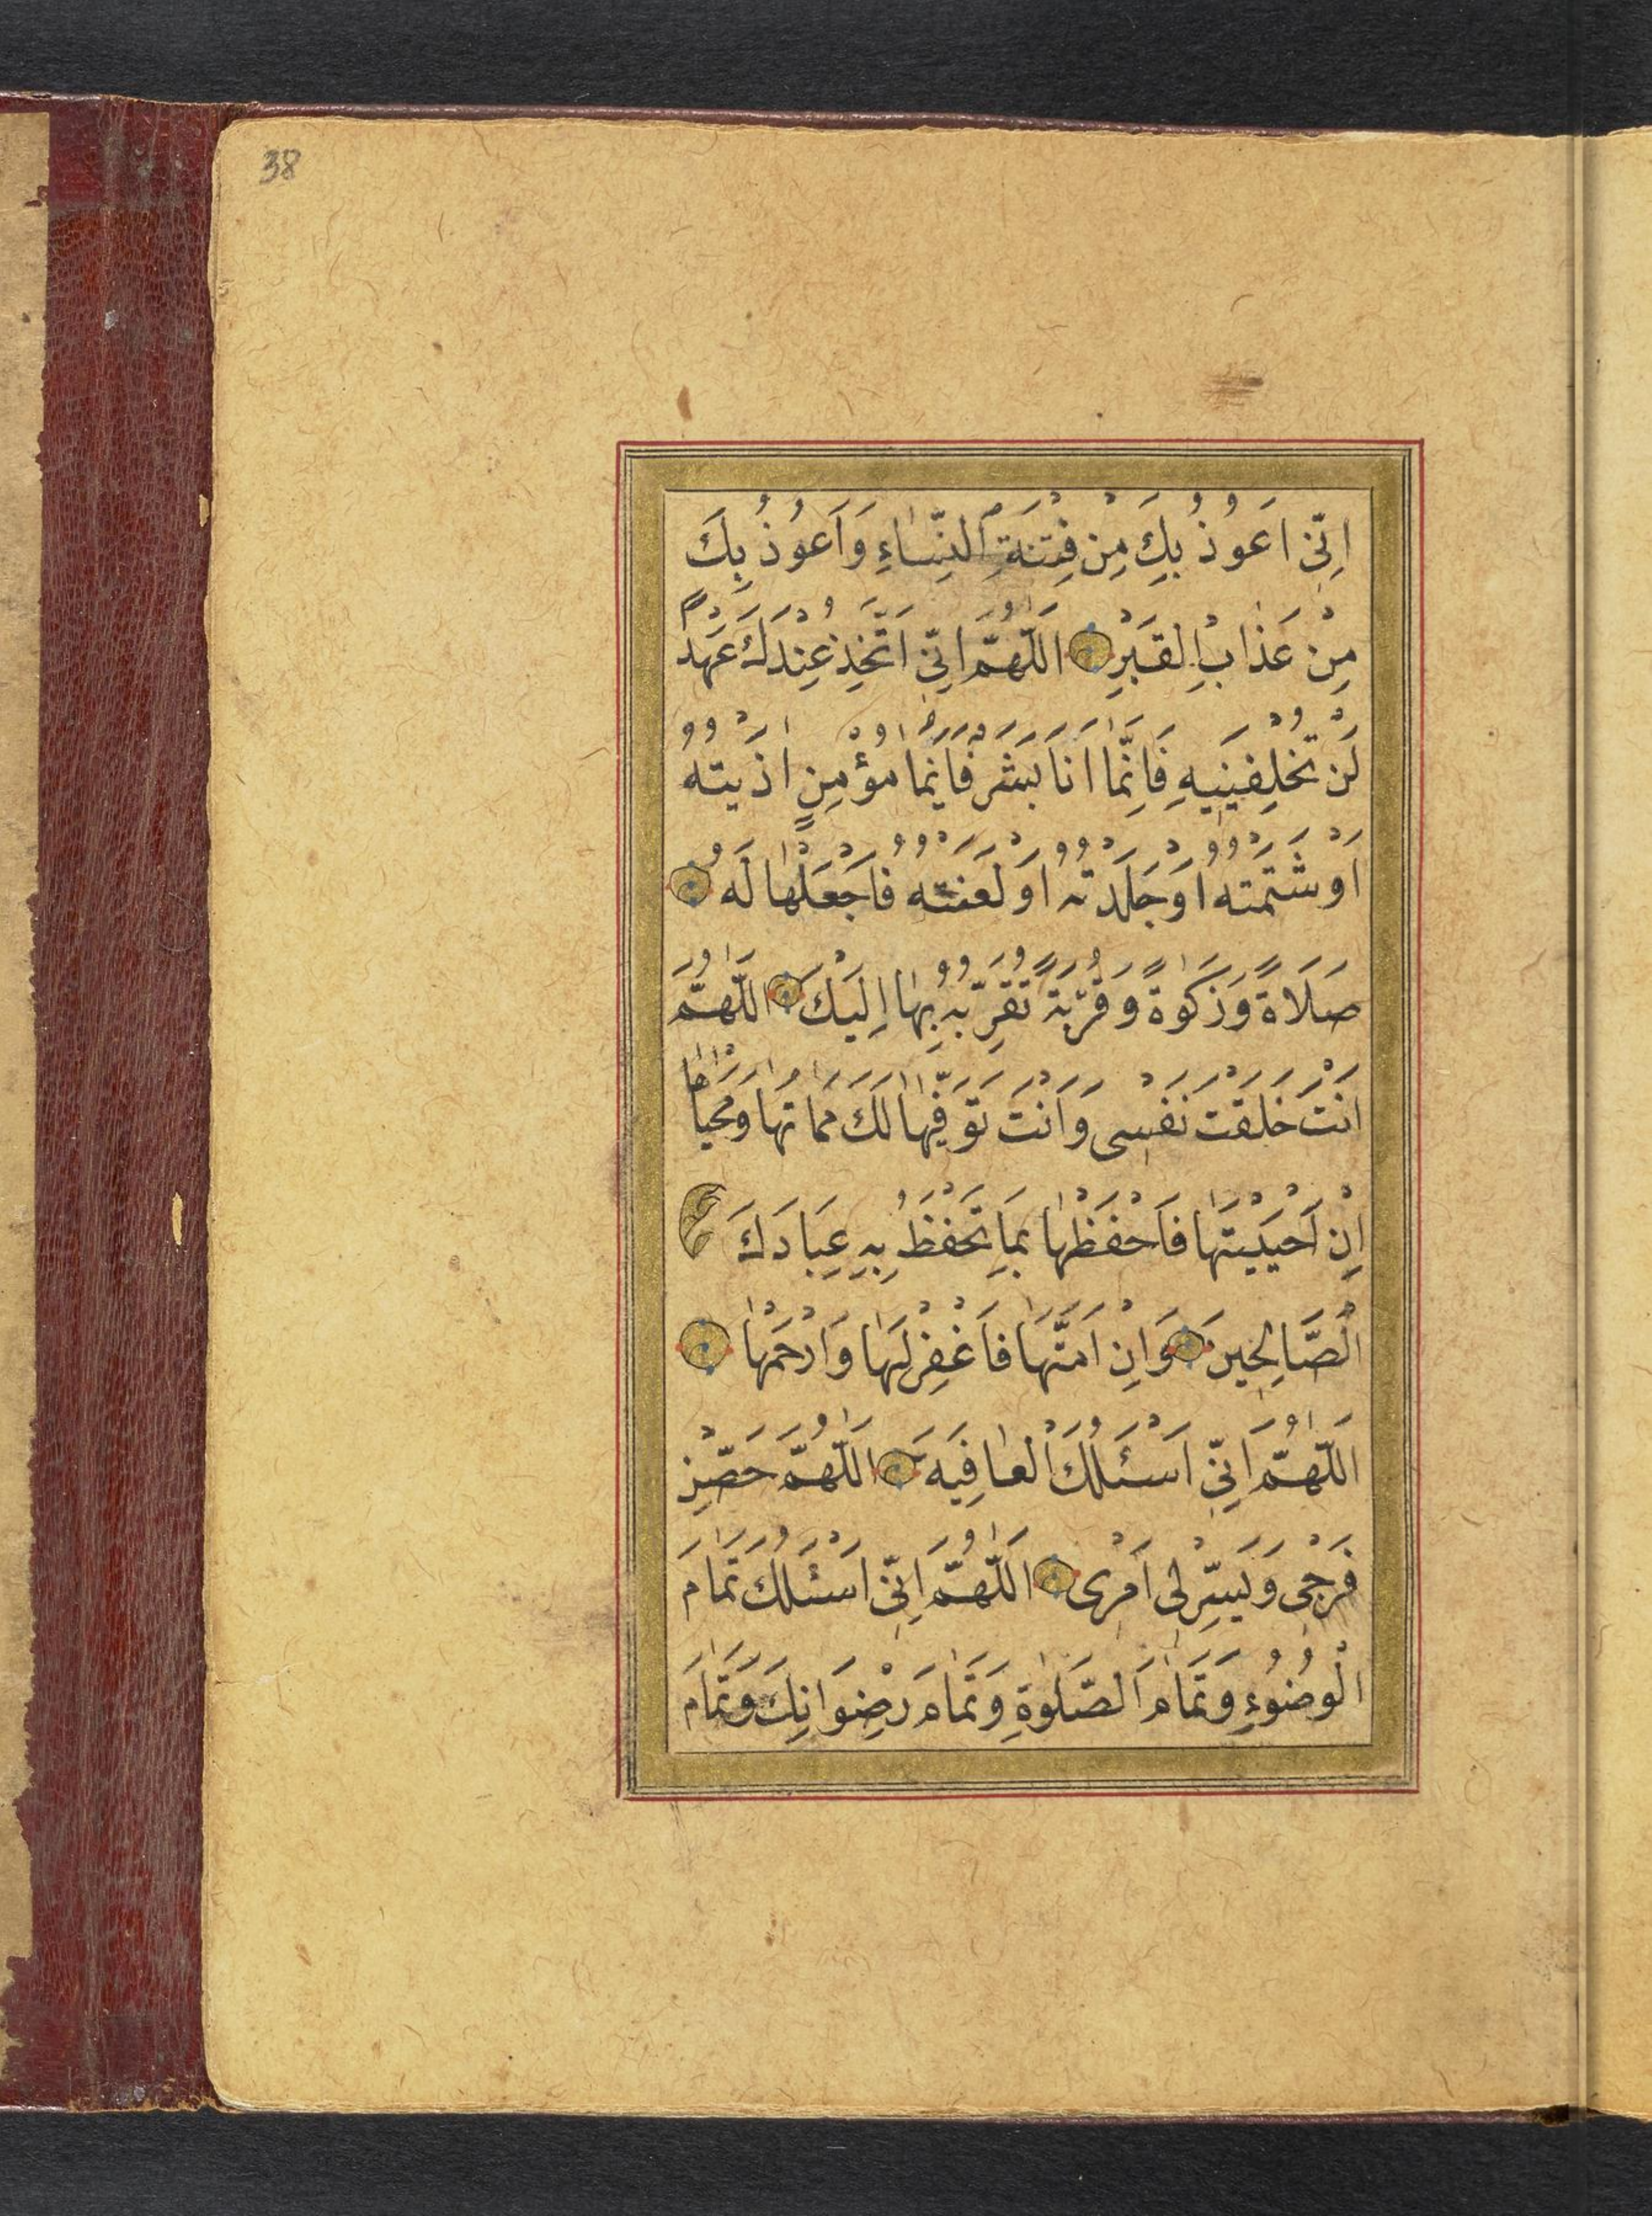 38
اِنّى اَعُوذُ بِكَ مِنْ فِتْنَةِ النِّسَاءِ وَاَعُوذُ بِكَ
مِنْ عَذَابِ الْقَبْرِ اَللّٰهُمَّ اِنّى اَتَّخِذُ عِنْدَكَ عَهْدًا
لَنْ تُخْلِفَنِيهِ فَاِنَّمَا اَنَا بَشَرٌ فَاَيُّمَا مُؤْمِنٍ اٰذَيْتُهُ
اَوْ شَتَمْتُهُ اَوْ جَلَدْتُهُ اَوْ لَعَنْتُهُ فَاجْعَلْهَا لَهُ
صَلَاةً وَزَكٰوةً وَقُرْبَةً تُقَرِّبُهُ بِهَا اِلَيْكَ اَللّٰهُمَّ
اَنْتَ خَلَقْتَ نَفْسِى وَاَنْتَ تَوَفّٰيهَا لَكَ مَمَاتُهَا وَمَحْيَاهَا
اِنْ اَحْيَيْتَهَا فَاحْفَظْهَا بِمَا تَحْفَظُ بِهِ عِبَادَكَ
الصَّالِحِينَ وَاِنْ اَمَتَّهَا فَاغْفِرْ لَهَا وَارْحَمْهَا
اَللّٰهُمَّ اِنّى اَسْئَلُكَ الْعَافِيَةَ اَللّٰهُمَّ حَصِّنْ
فَرْجِى وَيَسِّرْ لِى اَمْرِى اَللّٰهُمَّ اِنّى اَسْئَلُكَ تَمَامَ
الْوُضُوءِ وَتَمَامَ الصَّلٰوةِ وَتَمَامَ رِضْوَانِكَ وَتَمَامَ